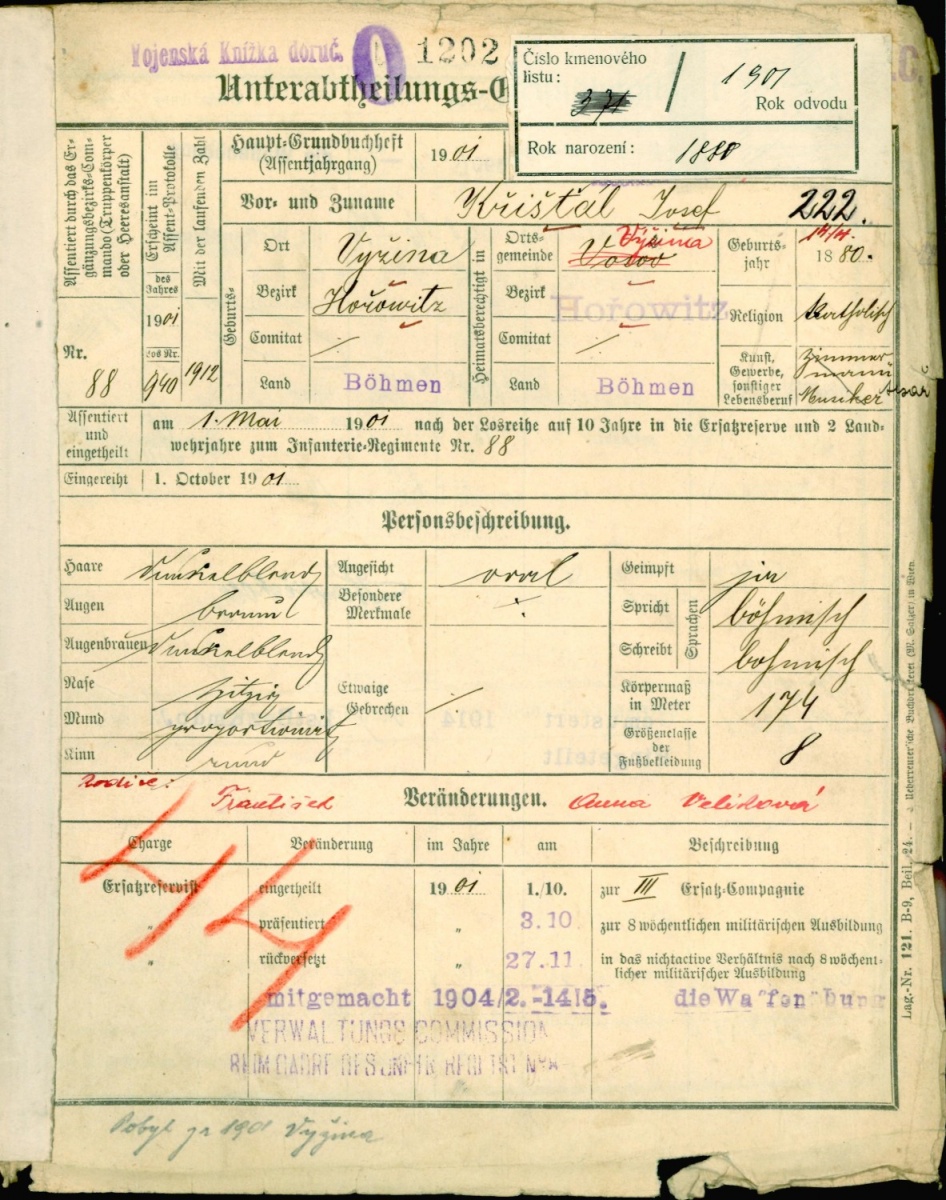 Vojenská Knížka doruč.
0
1202
Unterabtheilungs-G
Číslo kmenového
listu:
371 / 1901
Rok odvodu
Rok narození: 1880
Assentiert durch das Er-
gänzungsbezirks-Com-
mando (Truppenkörper
oder Heeresanstalt)
Nr.
88
Erscheint im
Assent-Protokolle
des
Jahres
1901
Los Nr.
940
Mit der laufenden Zahl
1912
Haupt-Grundbuchheft
(Assentjahrgang)
1901
Vor- und Zuname
Křišťál Josef
222.
Geburts-
Ort Vyžina
Bezirk Hořowitz
Comitat ./.
Land Böhmen
Heimatsberechtigt in
Orts-
gemeinde Vyžina
Bezirk Hořowitz
Comitat ./.
Land Böhmen
Geburts-
jahr 14/4. 1880.
Religion katholisch
Kunst,
Gewerbe,
sonstiger
Lebensberuf
Zimmermann
Musiker
tesař
Assentiert
und
eingetheilt
am 1. Mai 1901 nach der Losreihe auf 10 Jahre in die Ersatzreserve und 2 Land-
wehrjahre zum Infanterie-Regimente Nr. 88
Eingereiht 1. October 1901
Personsbeschreibung.
Haare dunkelblond
Augen braun
Augenbrauen dunkelblond
Nase spitzig
Mund proportionirt
Kinn rund
Angesicht oval
Besondere
Merkmale ./.
Etwaige
Gebrechen ./.
Geimpft ja
Spricht böhmisch
Sprachen
Schreibt böhmisch
Körpermaß
in Meter 174
Größenclasse
der
Fußbekleidung 8
Rodiče: František
Veränderungen.
Anna Velíková
Charge Veränderung im Jahre am Beschreibung
Ersatzreservist eingetheilt 1901 1./10. zur III Ersatz-Compagnie
„ präsentiert „ 3.10 zur 8 wöchentlichen militärischen Ausbildung
„ rückversetzt „ 27.11 in das nichtactive Verhältnis nach 8 wöchent-
licher militärischer Ausbildung
mitgemacht 1904/2.-14|5. die Wa"fen"bung
VERWALTUNGS COMMISSION
44
Pobyt zr 1901 Vyžina
Lag.-Nr. 121. B-9, Beil. 24. — Ueberreuter'sche Buchdruckerei (M. Salzer) in Wien.